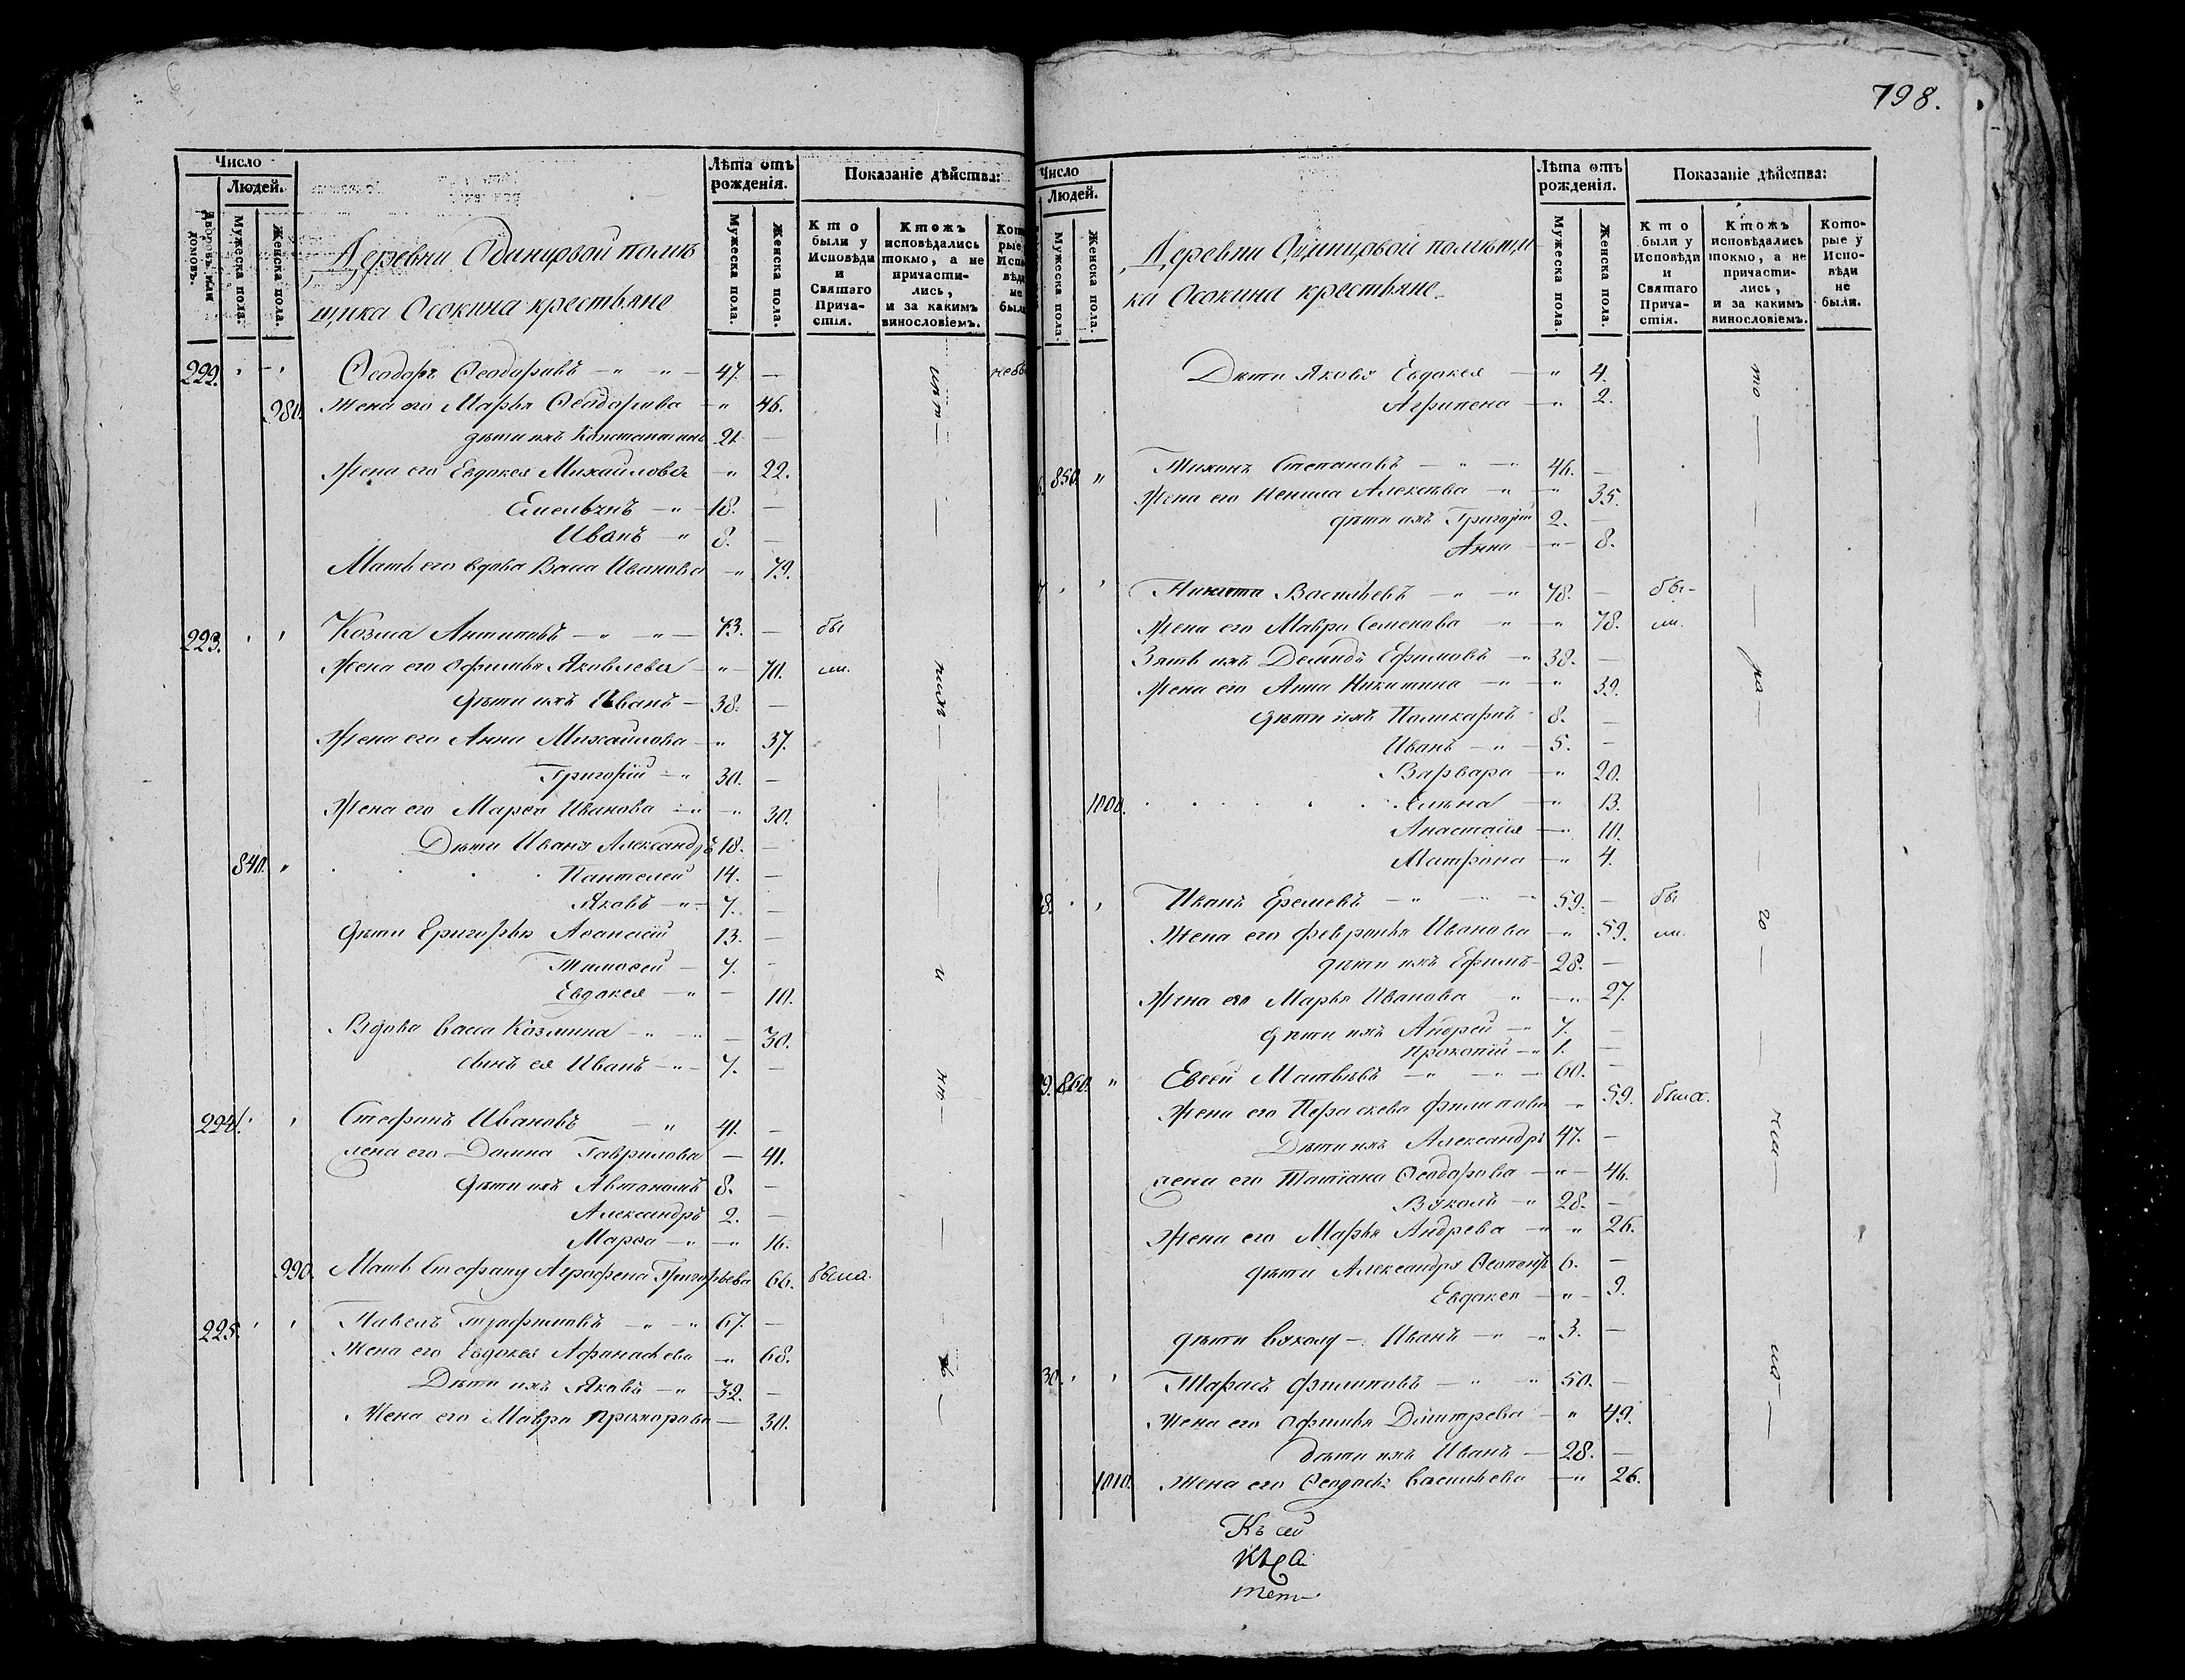 798.
Число
Людей.
Дворовъ или домовъ.
Мужеска пола.
Женска пола.
Лѣта отъ рожденія.
Мужеска пола.
Женска пола.
Показаніе дѣйства:
Кто были у Исповѣди и Святаго Прича-стія.
Ктожъ исповѣдались токмо, а не причасти-лись, и за какимъ винословіемъ.
Деревни Одинцовой помѣ
щика Осокина крестьяне
222. Ѳеодоръ Ѳеодоровъ — " — 47. —
980. Жена его Марья Ѳеодорова — " 46.
дѣти ихъ Константинъ 21 —
Жена его Евдокея Михайлова — " 22.
Емельянъ — " — 18. —
Иванъ — " 8. —
Мать его вдова Васа Иванова — " 79.
223. Козма Антиповъ — " — " — 73. — бы
Жена его Офимья Яковлева — " — 70. ли.
дѣти ихъ Иванъ — 38. —
Жена его Анна Михайлова — " 37.
Григорій — " 30. —
Жена его Марѳа Иванова — " — " 30.
Дѣти Ивана Александръ 18. —
840. " Пантелей 14. —
Яковъ — " — 7. —
дѣти Григорья Аѳанасій 13. —
Тимоѳей — 7. —
Евдокея — " — 10.
Вдова Васса Козмина — " — " — 30.
сынъ ея Иванъ — " — 7. —
224. Стефанъ Ивановъ — " 41. —
жена его Домна Гаврилова — 41.
дѣти ихъ Автономъ 8. —
Александръ 2. —
Марѳа — " — " 16.
990. Мать Стефану Аграфена Григорьева 66. была.
225. Павелъ Трофимовъ — " — " 67. —
Жена его Евдокея Афанасьева — " 68.
Дѣти ихъ Яковъ — " 32. —
Жена его Мавра Прохорова — 30.
Число
Людей.
Мужеска пола
Женска пола.
Лѣта отъ рожденія.
Мужеска пола.
Женска пола.
Показаніе дѣйства:
Кто были у Исповѣди и Святаго Прича-стія.
Ктожъ исповѣдались токмо, а не причасти-лись, и за какимъ винословіемъ.
Кото-рые у Испо-вѣди не были.
Деревни Одинцовой помѣщи
ка Осокина крестьяне
Дѣти Якова Евдокея — " 4.
Агрипена — " 2.
850. " Тихонъ Степановъ — " — " 46. —
Жена его Ненила Алексѣева — " — " 35.
дѣти ихъ Григорій 2. —
Анна — " — 8.
Никита Васильевъ — " — " 78. — бы-
Жена его Мавра Семенова — " — " 78. ли.
Зять ихъ Демидъ Ефимовъ — " 38. —
Жена его Анна Никитина — " — " 39.
дѣти ихъ Поликарпъ 8. —
Иванъ — " — 5. —
Варвара — " 20.
1000. Елена — " 13.
Анастасія — " 10.
Матрона — " 4.
Иванъ Еремевъ — " — " 59. — бы
Жена его Февронья Иванова — " 59. ли.
дѣти ихъ Ефимъ — 28. —
Жена его Марья Иванова " — " 27.
дѣти ихъ Андрей — " 7. —
Прокопій — " 1. —
860. " Евсей Матвѣевъ — " — " — 60. —
Жена его Пераскева Филипова — " 59. была.
Дѣти ихъ Александръ 47. —
жена его Татіана Ѳеодорова — " — 46.
Вуколъ — " 28. —
Жена его Марья Андрева — " " 26.
дѣти Александра 6. —
Евдокея — " — 9.
дѣти Вуколу — Иванъ — " — " 3. —
Тарасъ Филиповъ — " — " 50. —
Жена его Офимья Димитрева — " 49.
дѣти ихъ Иванъ — 28. —
1010. Жена его Ѳеодосья Васильева — " 26.
Къ сей